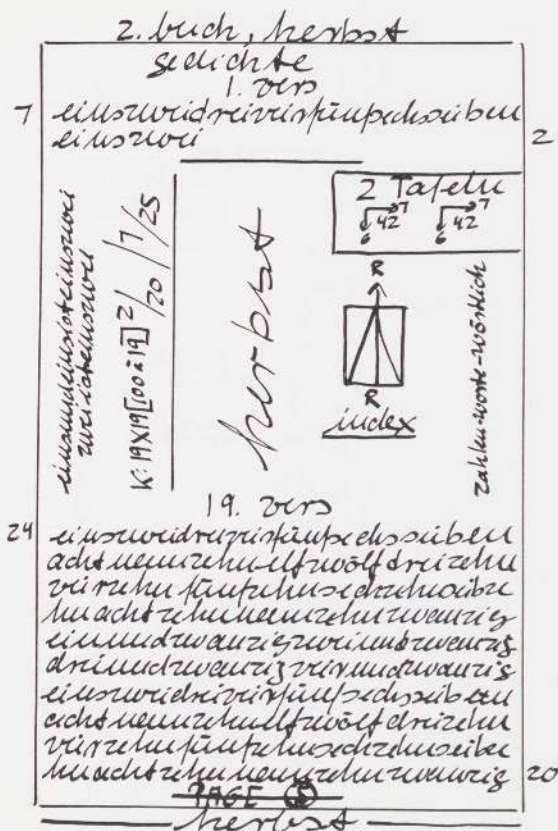 2. buch, herbst
gedichte
1. vers
7 einszweidreivierfünfsechssieben
einszwei 2
einsundeinsisteinszwei
zweiisteinszwei
K: 19X19[100à19]2/20/7/25
herbst
2 Tafeln
7 7
42 42
6 6
R
R
index
zahlen-worte-wörtlich
19. vers
24 einszweidreivierfünfsechssieben
achtneunzehnelfzwölfdreizehn
vierzehnfünfzehnsechzehnsiebze
hnachtzehnneunzehnzwanzig
einundzwanzigzweiundzwanzig
dreiundzwanzigvierundzwanzig
einszweidreivierfünfsechssieben
achtneunzehnelfzwölfdreizehn
vierzehnfünfzehnsechzehnsiebze
hnachtzehnneunzehnzwanzig 20
PAGE
herbst